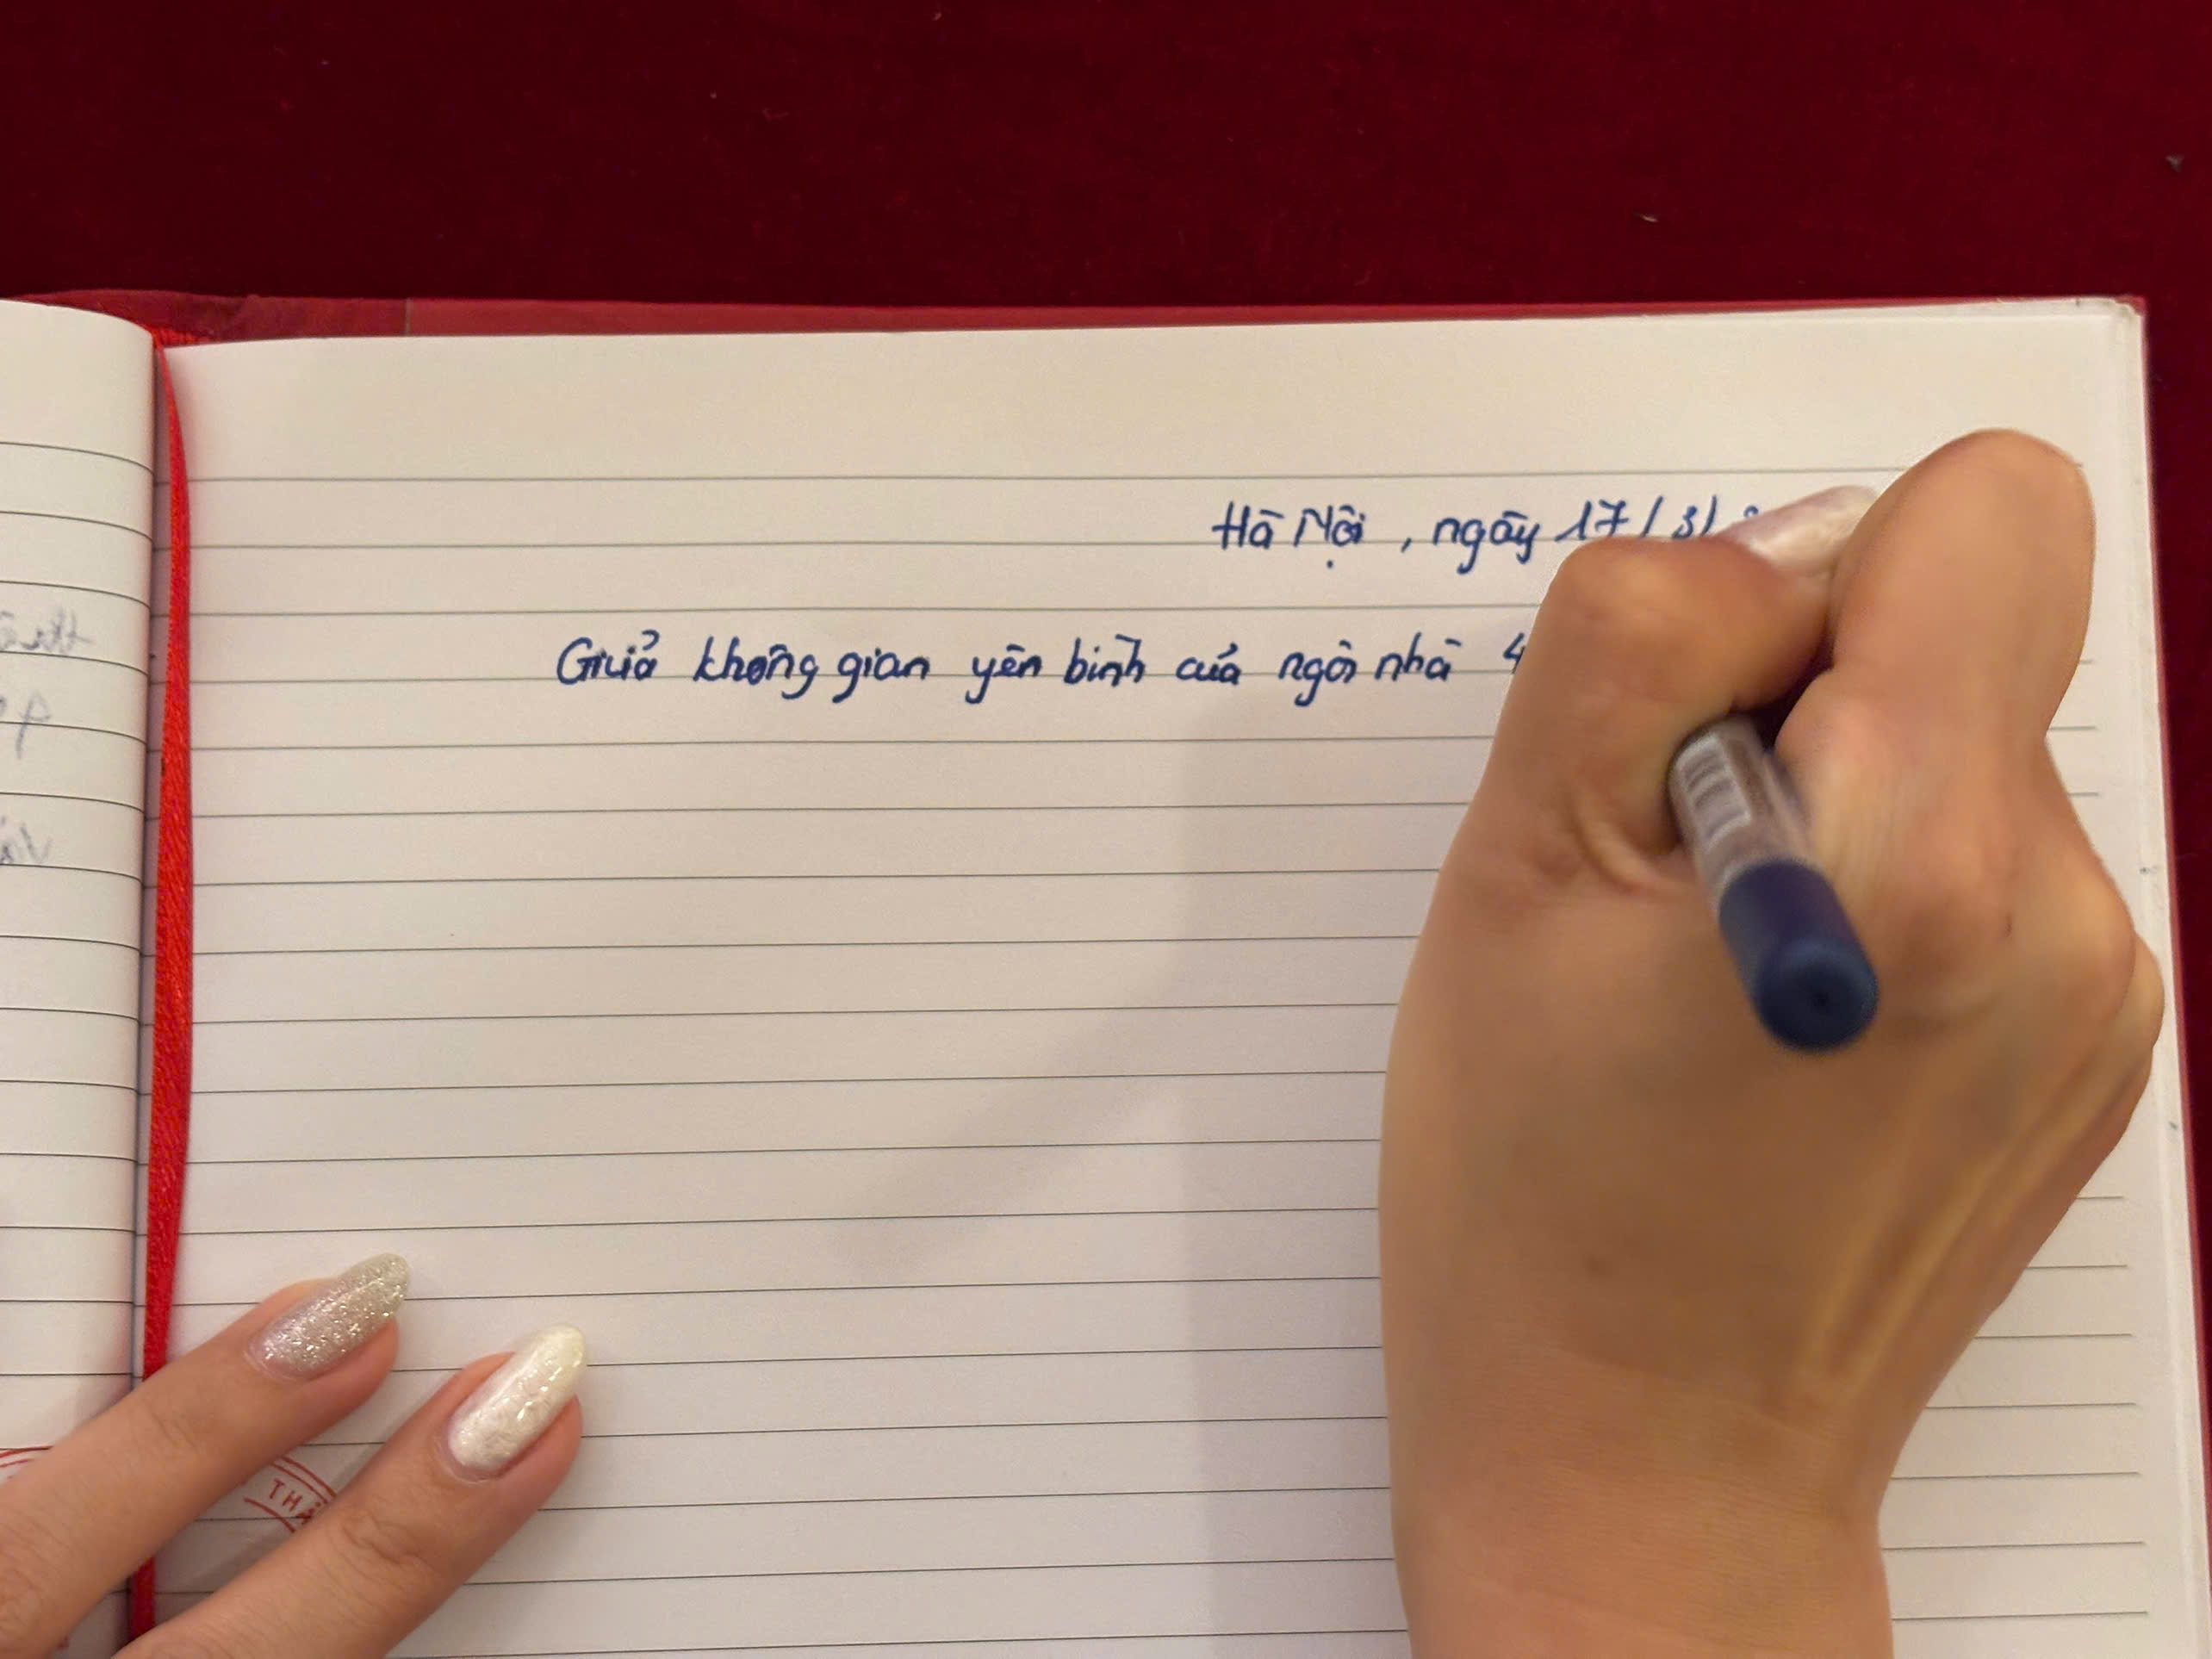 Hà Nội, ngày 17/3/
Giữa không gian yên bình của ngôi nhà 4
THĂ